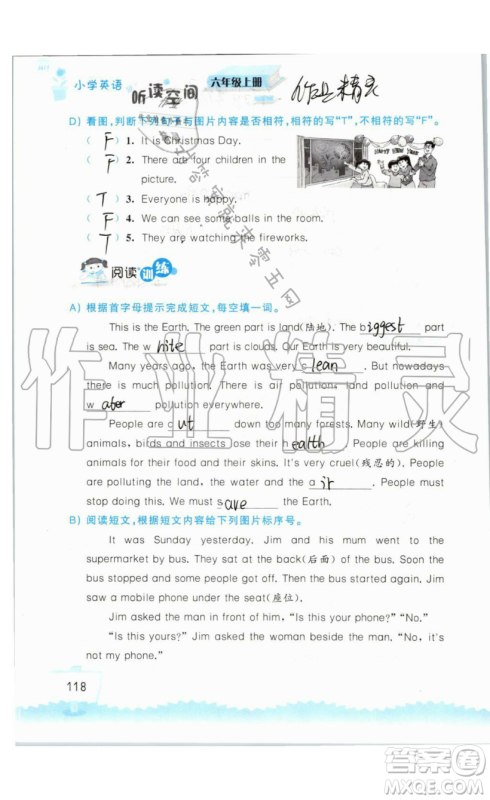 小学英语
听读空间
六年级上册
作业精灵
D）看图,判断下列句子与图片内容是否相符,相符的写“T”,不相符的写“F”。
（ F ）1. It is Christmas Day.
（ F ）2. There are four children in the
picture.
（ T ）3. Everyone is happy.
（ F ）4. We can see some balls in the room.
（ T ）5. They are watching the fireworks.
阅读训练
A）根据首字母提示完成短文,每空填一词。
This is the Earth. The green part is land(陆地). The biggest part
is sea. The white part is clouds. Our Earth is beautiful.
Many years ago, the Earth was very clean. But nowadays
there is much pollution. There is air pollution, land pollution and
water pollution everywhere.
People are cut down too many forests. Many wild(野生)
animals, birds and insects lose their heatth. People are killing
animals for their food and their skins. It's very cruel(残忍的).
People are polluting the land, the water and the air.
People are polluting the land, the water and the air. We must save the Earth.
B）阅读短文,根据短文内容给下列图片标序号。
It was Sunday yesterday. Jim and his mum went to the
supermarket by bus. They sat at the back(后面) of the bus. Soon the
bus stopped and some people got off. Then the bus started again. Jim
saw a mobile phone under the seat(座位).
Jim asked the man in front of him, “Is this your phone?” “No.”
“Is this yours?” Jim asked the woman beside the man. “No, it's
not my phone.”
118
作业精灵
答案圈
MXQE.COM